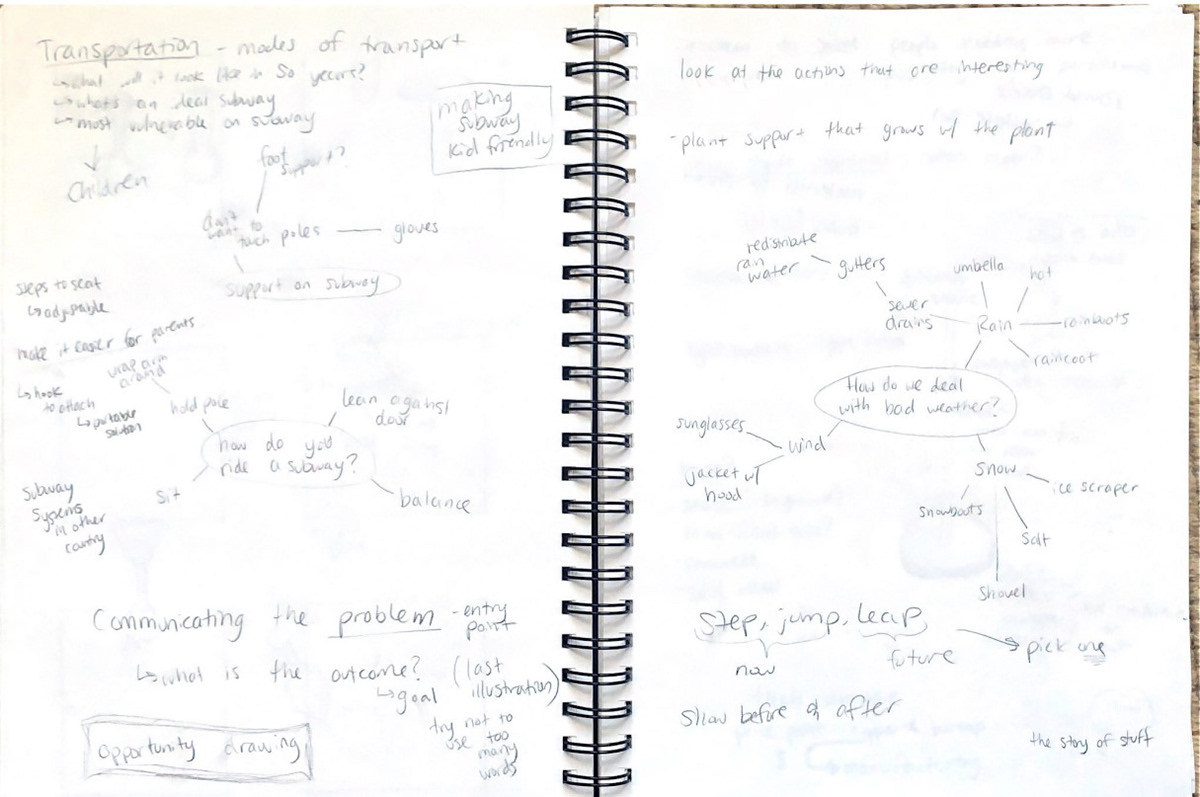 Transportation - modes of transport
↳what will it look like in 50 years?
↳what's an ideal subway
↳most vulnerable on subway
Children
making
subway
kid friendly
foot
support?
don't
want to
touch poles
gloves
support on subway
steps to seat
↳adjustable
make it easier for parents
↳hook
to attach
↳portable
solution
wrap arm
around
hold pole
lean against
door
how do you
ride a subway?
sit
balance
Subway
Systems
in other
country
Communicating the problem - entry
point
↳what is the outcome?
↳goal
(last
illustration)
try not to
use too
many
words
opportunity drawing
look at the actions that are interesting
-plant support that grows w/ the plant
redistribute
rain
water
gutters
sewer
drains
umbella
hat
Rain
rainboots
raincoat
How do we deal
with bad weather?
sunglasses
wind
jacket w/
hood
Snow
ice scraper
snowboots
Salt
Shovel
Step, jump, leap
now
future
→ pick one
Show before & after
the story of stuff